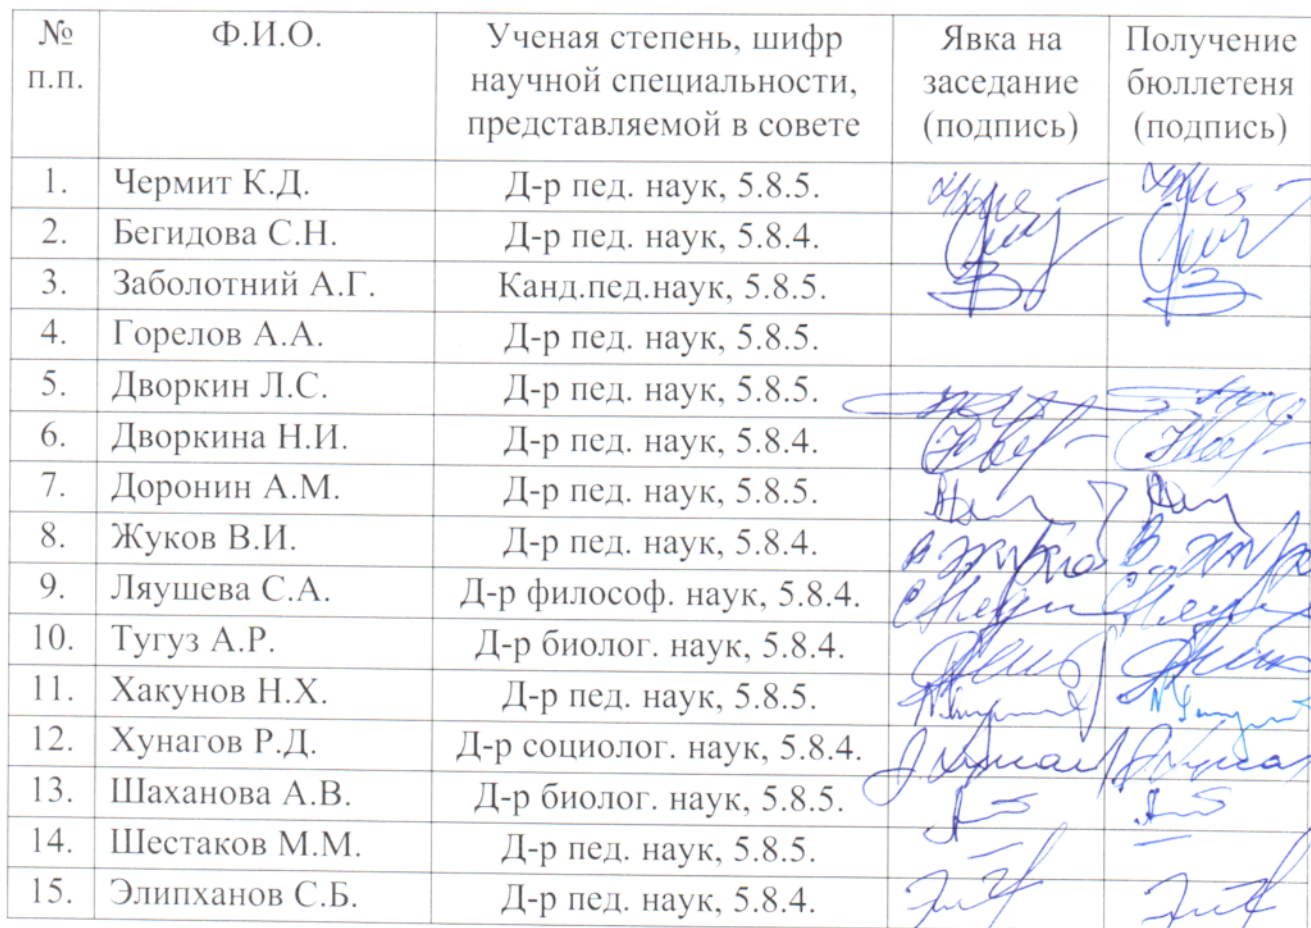 № п.п. Ф.И.О. Ученая степень, шифр научной специальности, представляемой в совете Явка на заседание (подпись) Получение бюллетеня (подпись)
1. Чермит К.Д. Д-р пед. наук, 5.8.5.
2. Бегидова С.Н. Д-р пед. наук, 5.8.4.
3. Заболотний А.Г. Канд.пед.наук, 5.8.5.
4. Горелов А.А. Д-р пед. наук, 5.8.5.
5. Дворкин Л.С. Д-р пед. наук, 5.8.5.
6. Дворкина Н.И. Д-р пед. наук, 5.8.4.
7. Доронин А.М. Д-р пед. наук, 5.8.5.
8. Жуков В.И. Д-р пед. наук, 5.8.4.
9. Ляушева С.А. Д-р философ. наук, 5.8.4.
10. Тугуз А.Р. Д-р биолог. наук, 5.8.4.
11. Хакунов Н.Х. Д-р пед. наук, 5.8.5.
12. Хунагов Р.Д. Д-р социолог. наук, 5.8.4.
13. Шаханова А.В. Д-р биолог. наук, 5.8.5.
14. Шестаков М.М. Д-р пед. наук, 5.8.5.
15. Элипханов С.Б. Д-р пед. наук, 5.8.4.